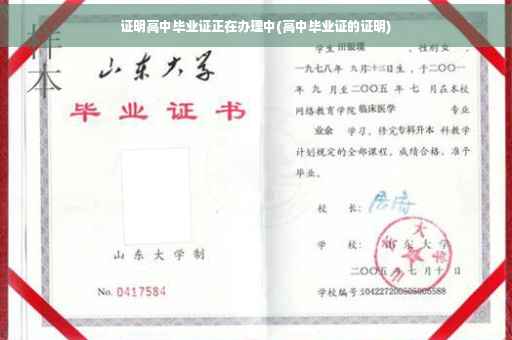 证明高中毕业证正在办理中(高中毕业证的证明)
样本
山东大学
毕业证书
山东大学制
No. 0417584
学生 田银瑞 ,性别女 ,
一九七八年 九月十三日生,于二〇〇一
年 九 月至二〇〇五 年 七 月在本校
网络教育学院 临床医学 专业
业余 学习,修完专科升本 科教学
计划规定的全部课程,成绩合格,准予
毕业。
校 长:
学 校: 山东大学
二〇〇五 年 七 月 十 日
学校编号:104227200505005588